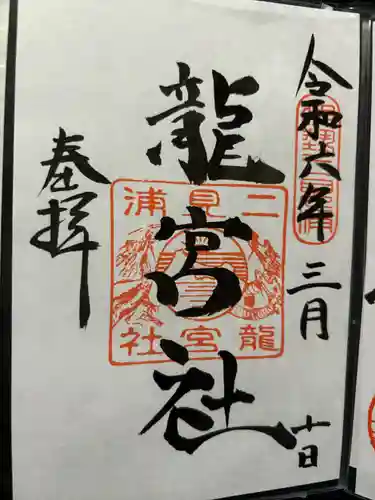 令和六年
三月
十日
龍宮社
二見浦
龍宮社
奉拝